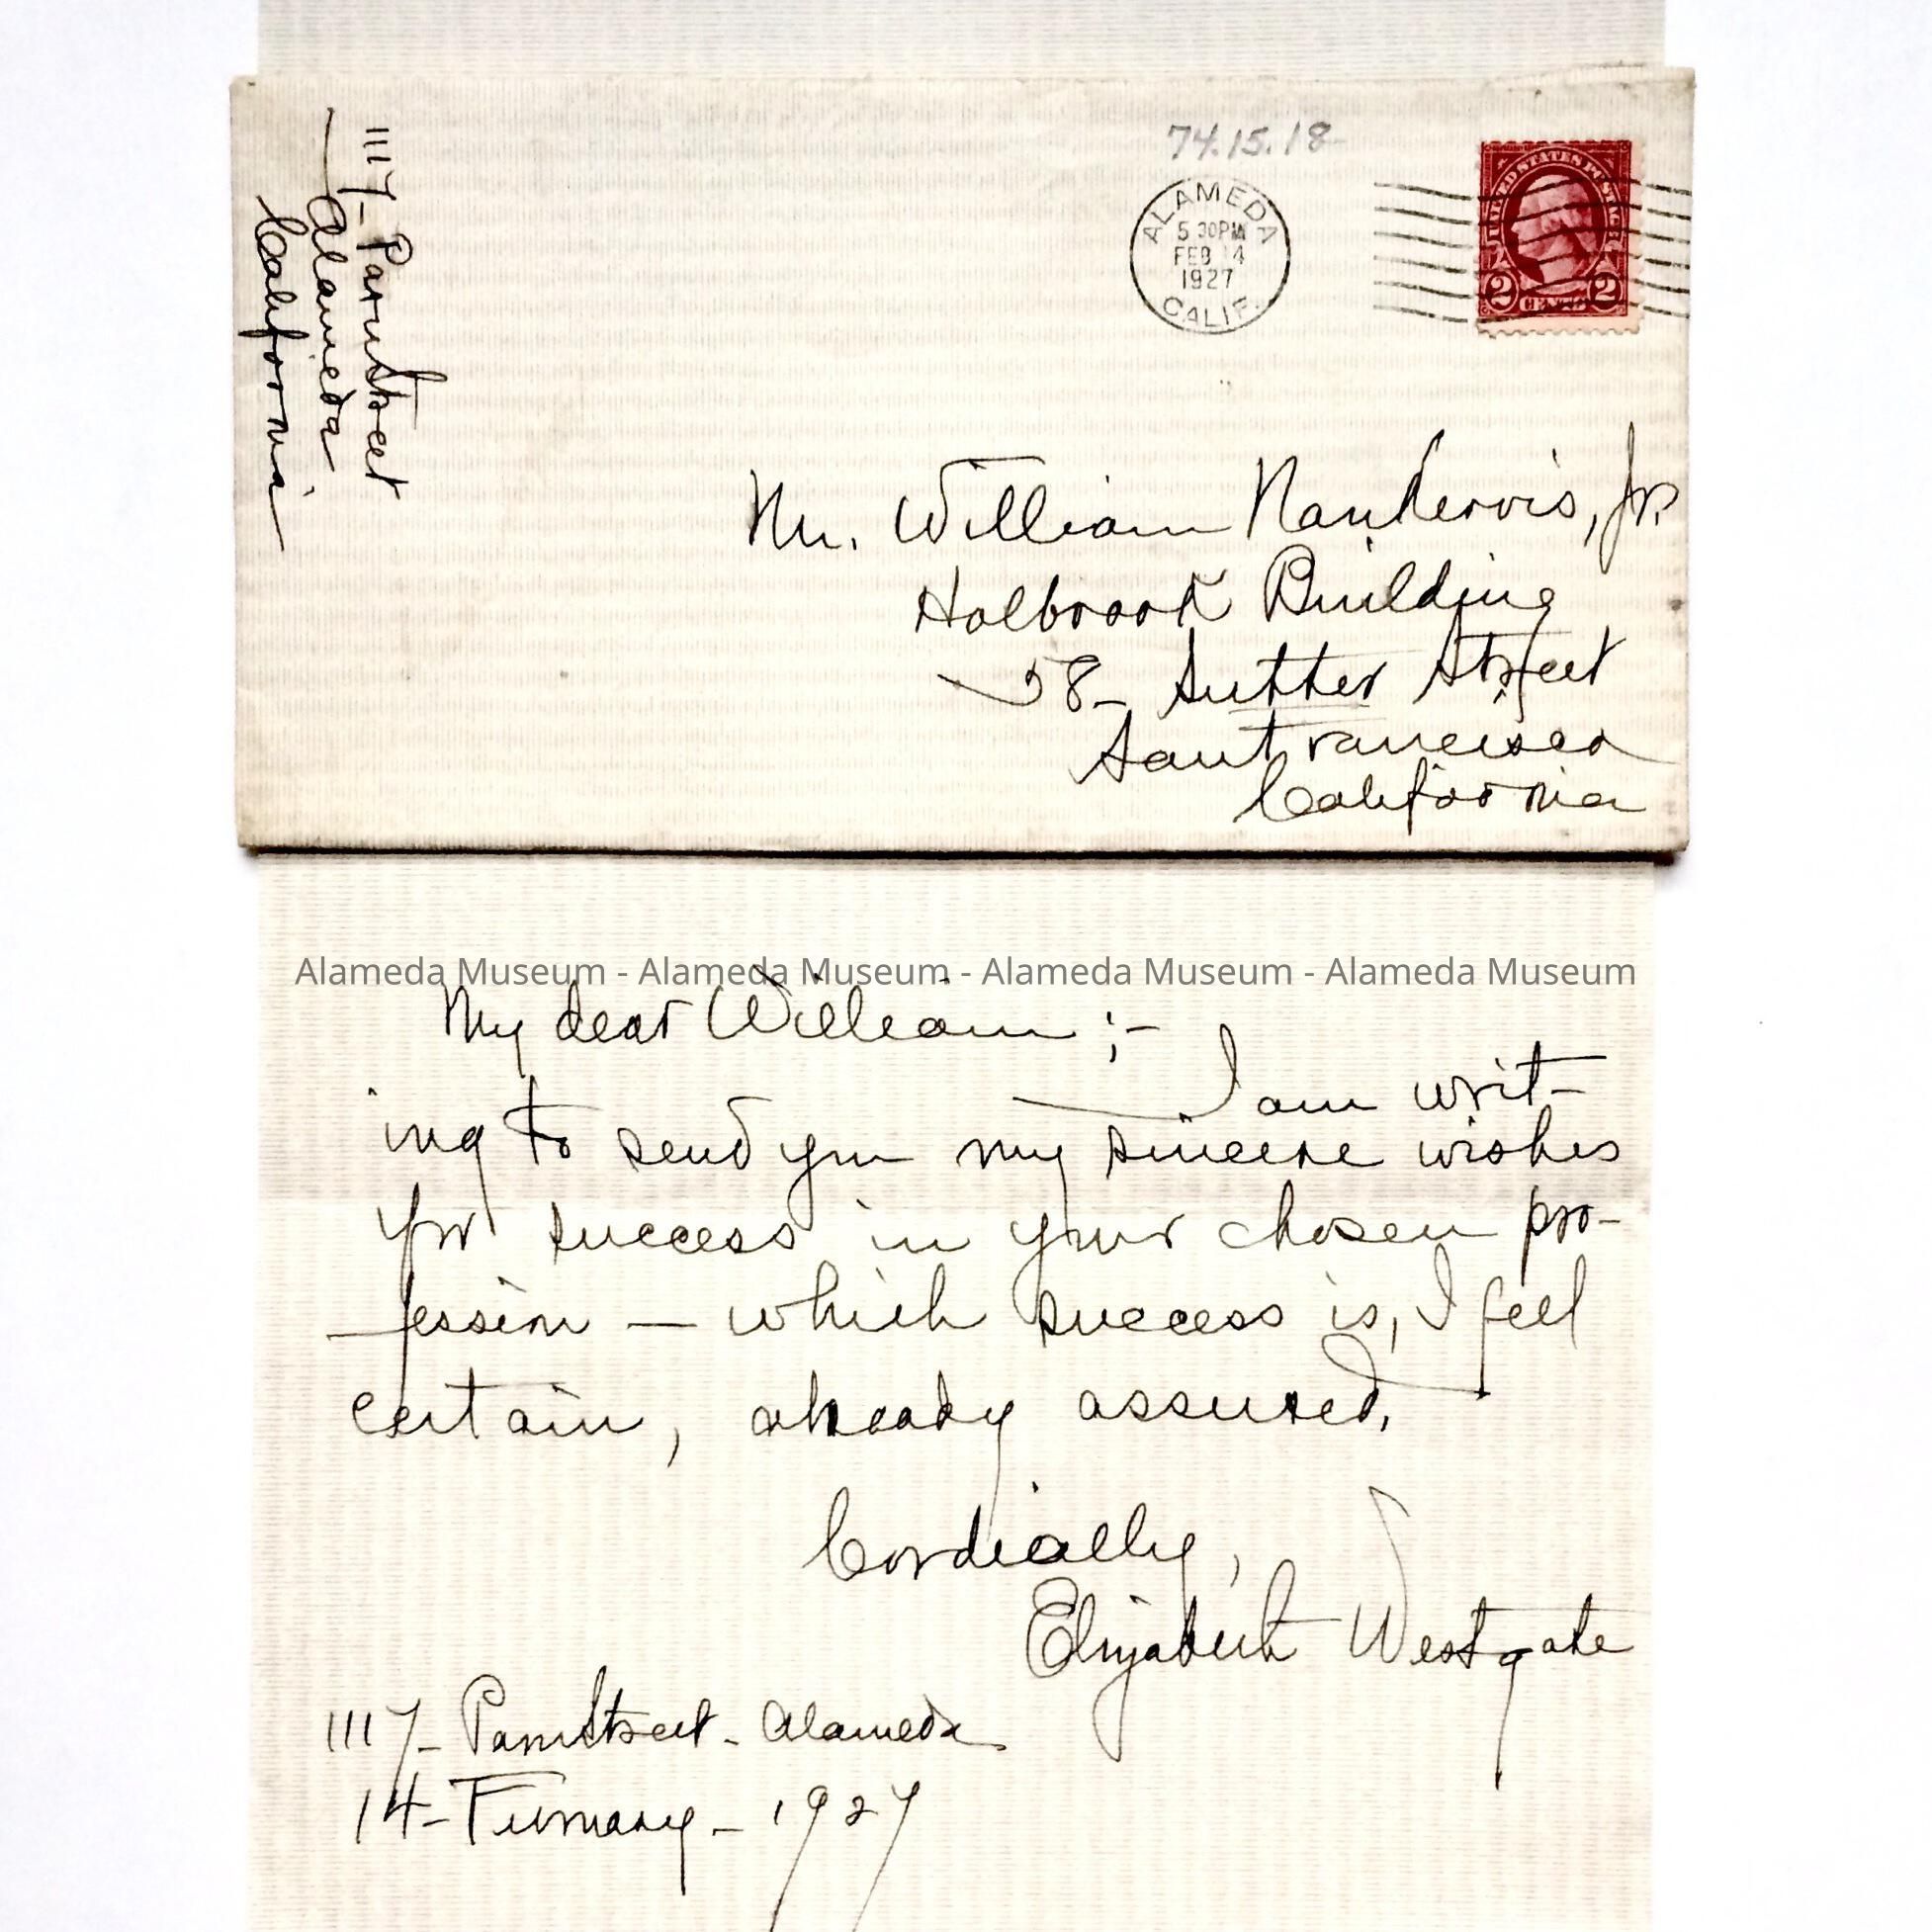 1117- Paru Street
Alameda
California
74.15.18
ALAMEDA
5 30PM
FEB 14
1927
CALIF.
UNITED STATES POSTAGE
2 CENTS 2
Mr. William Nankervis, Jr.
Holbrook Building
58- Sutter Street
San Francisco
California
Alameda Museum - Alameda Museum - Alameda Museum - Alameda Museum
My dear William ;-
I am writ-
ing to send you my sincere wishes
for success in your chosen pro-
fession — which success is, I feel
certain, already assured.
Cordially,
Elizabeth Westgate
1117- Paru Street - Alameda
14- February - 1927